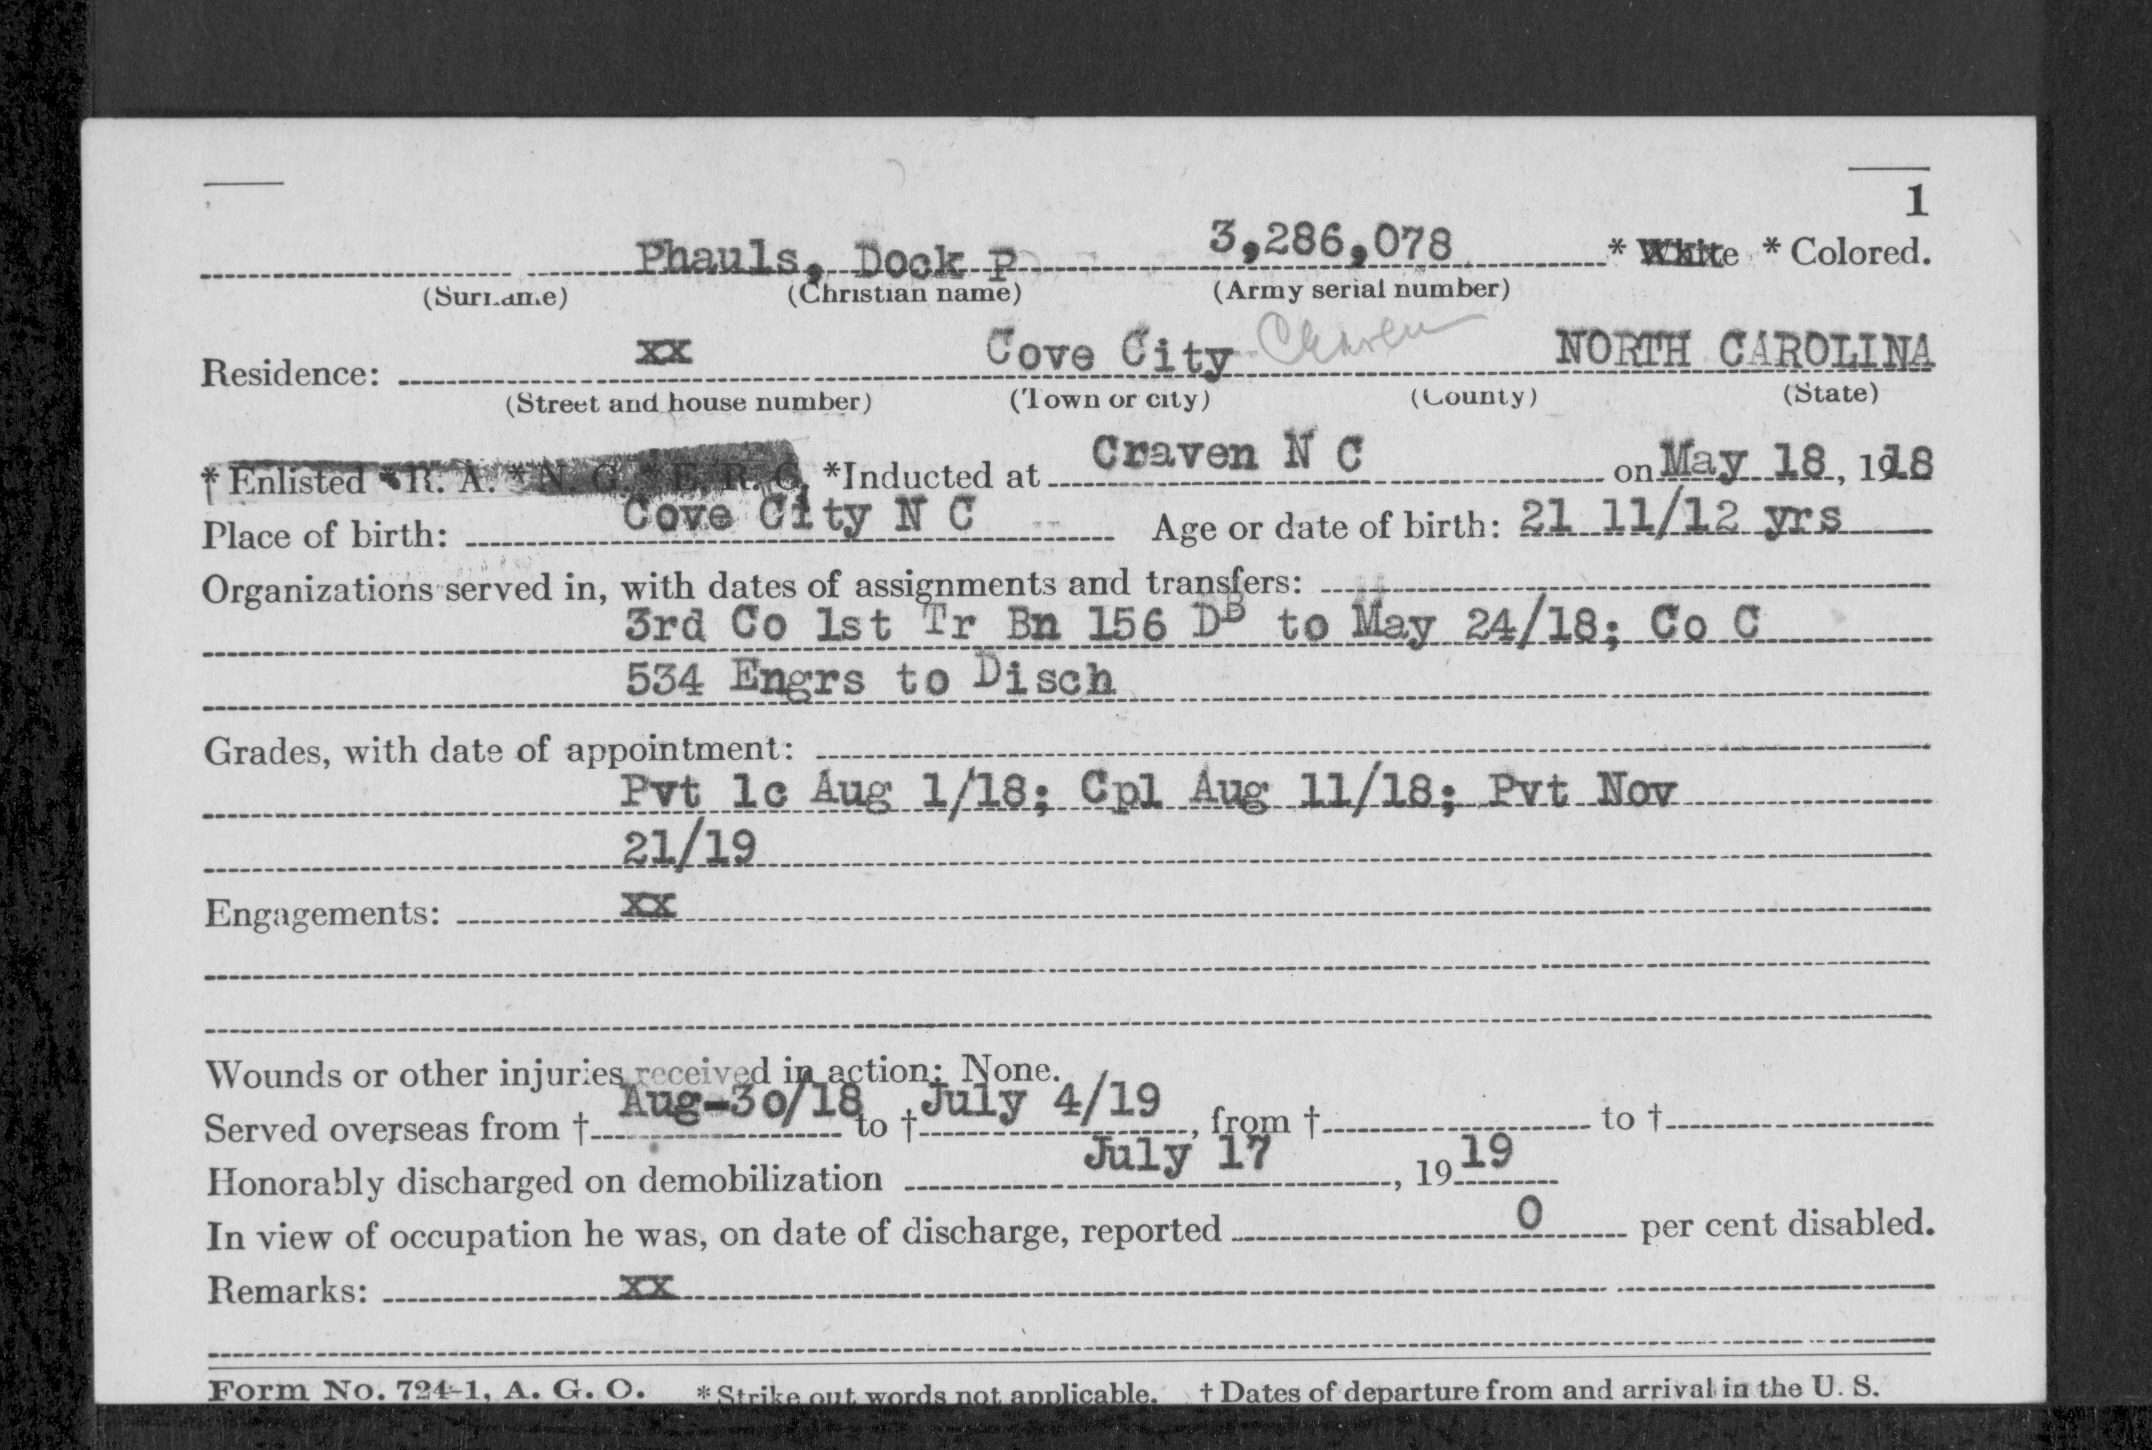 1
Phauls, Dock P 3,286,078 * White * Colored.
(Surname) (Christian name) (Army serial number)
Residence: xx Cove City Craven NORTH CAROLINA
(Street and house number) (Town or city) (County) (State)
* Enlisted * R. A. * N. G. * E. R. C. *Inducted at Craven N C on May 18, 1918
Place of birth: Cove City N C Age or date of birth: 21 11/12 yrs
Organizations served in, with dates of assignments and transfers:
3rd Co 1st Tr Bn 156 DB to May 24/18; Co C
534 Engrs to Disch
Grades, with date of appointment:
Pvt 1c Aug 1/18; Cpl Aug 11/18; Pvt Nov
21/19
Engagements: xx
Wounds or other injuries received in action: None.
Served overseas from † Aug-30/18 to † July 4/19, from † to †
Honorably discharged on demobilization July 17, 1919
In view of occupation he was, on date of discharge, reported 0 per cent disabled.
Remarks: xx
Form No. 724-1, A. G. O. * Strike out words not applicable. † Dates of departure from and arrival in the U. S.